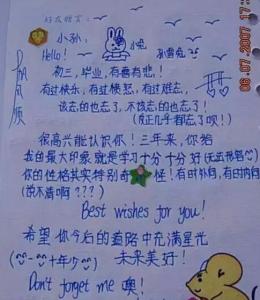 好友赠言:
小孙:
Hello! 小兔 孙雪兔
帆风顺
初三,毕业,有喜有悲!
有过快乐,有过愤怒,有过难忘,
该忘的也忘了,不该忘的也忘了!
(反正几乎都忘了呗!)
很高兴能认识你!三年来,你给
我的最大印象就是学习十分十分好
你的性格其实特别奇怪!有时外向,有时内向
(说不清啊???)
Best wishes for you!
希望你今后的道路中充满星光
十年少 未来美好!
Don't forget me 噢!
06.07.2007 17: